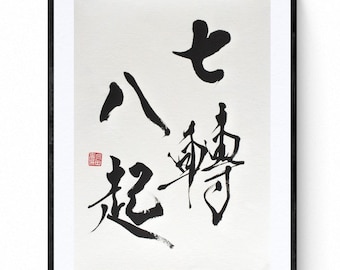 七轉
八起